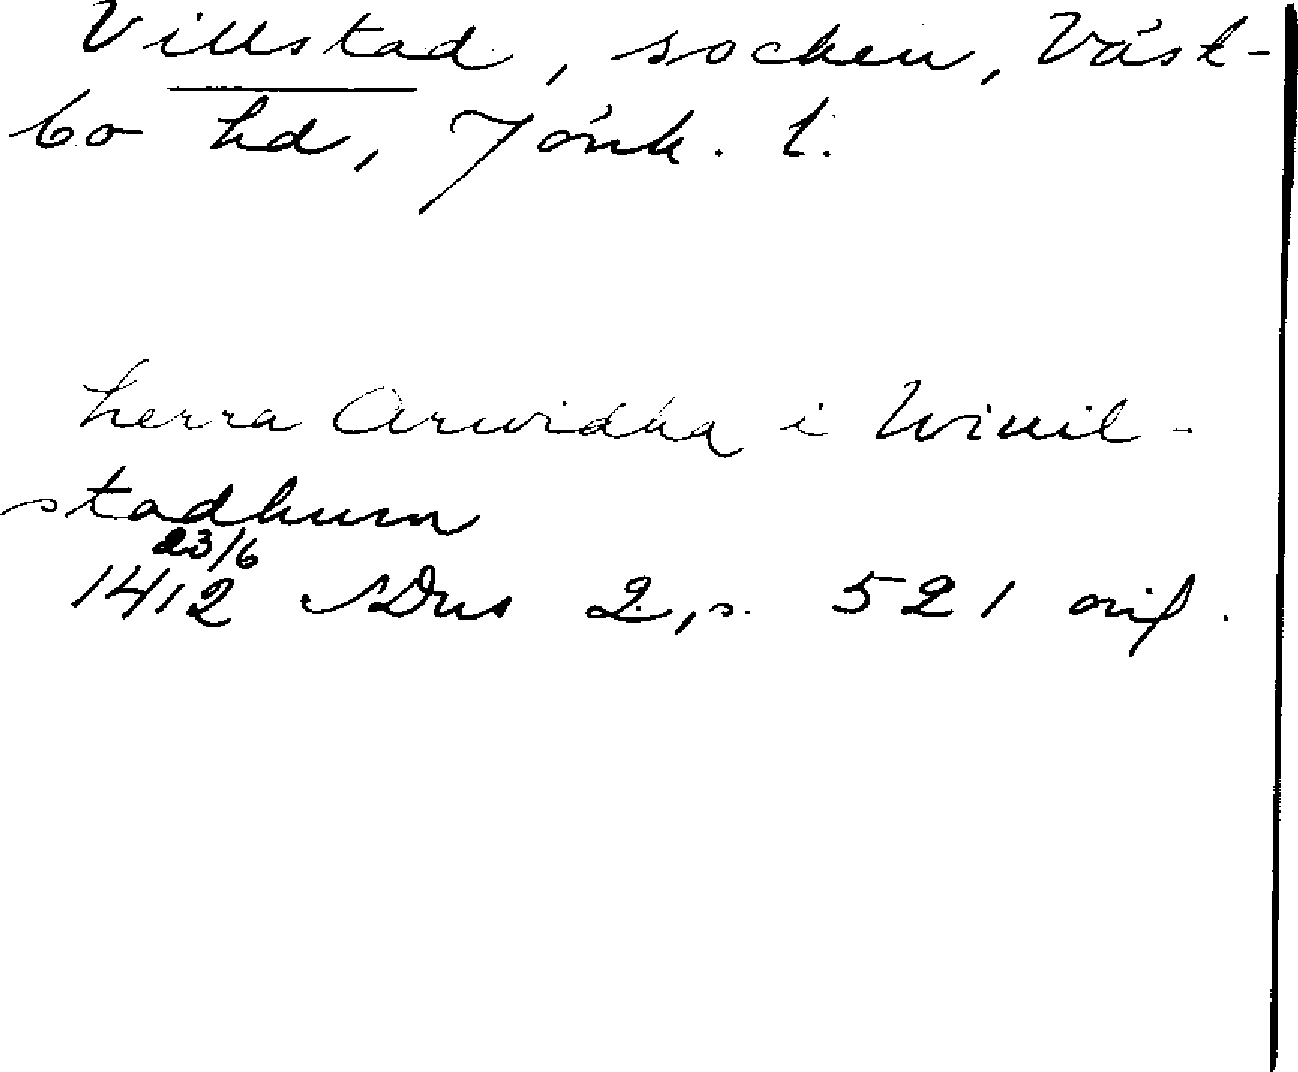 Villstad, socken, Väst-
bo hd, Jönk. l.
herra Arwidha i Winil-
stadhum
23/6
1412 SDns 2, s. 521 orig.